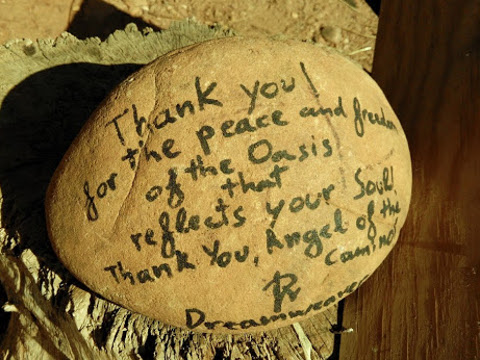 Thank you!
for the peace and freedom
of the Oasis
that
reflects your Soul!
Thank You, Angel of the
Camino!
Dreamweaver